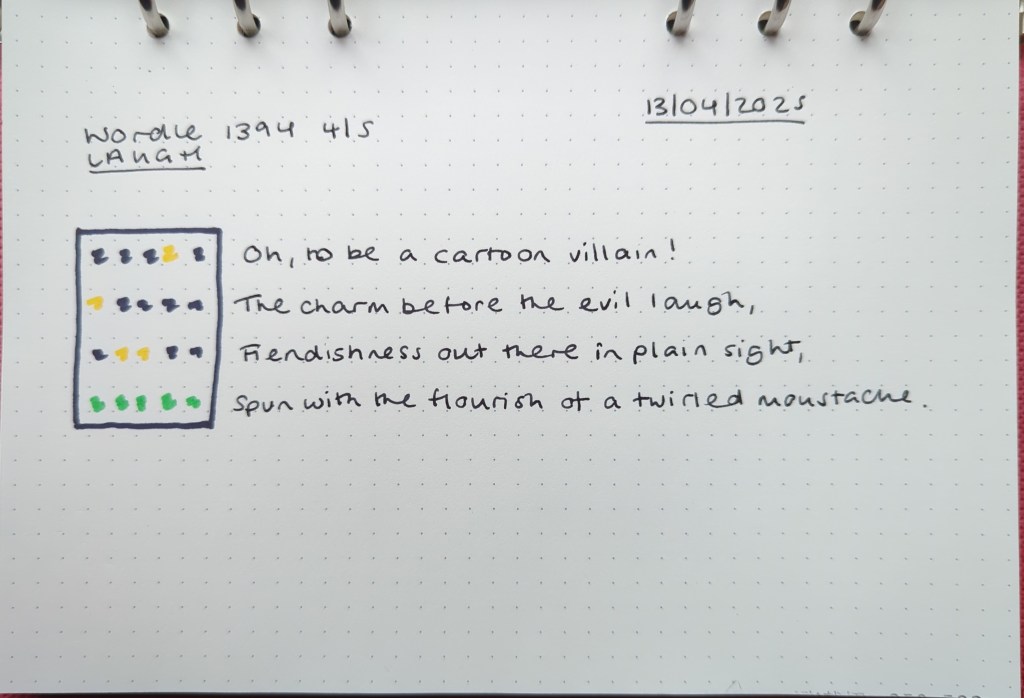 13/04/2025
Wordle 1394 4/5
LAUGH
Oh, to be a cartoon villain!
The charm before the evil laugh,
Fiendishness out there in plain sight,
Spun with the flourish of a twirled moustache.